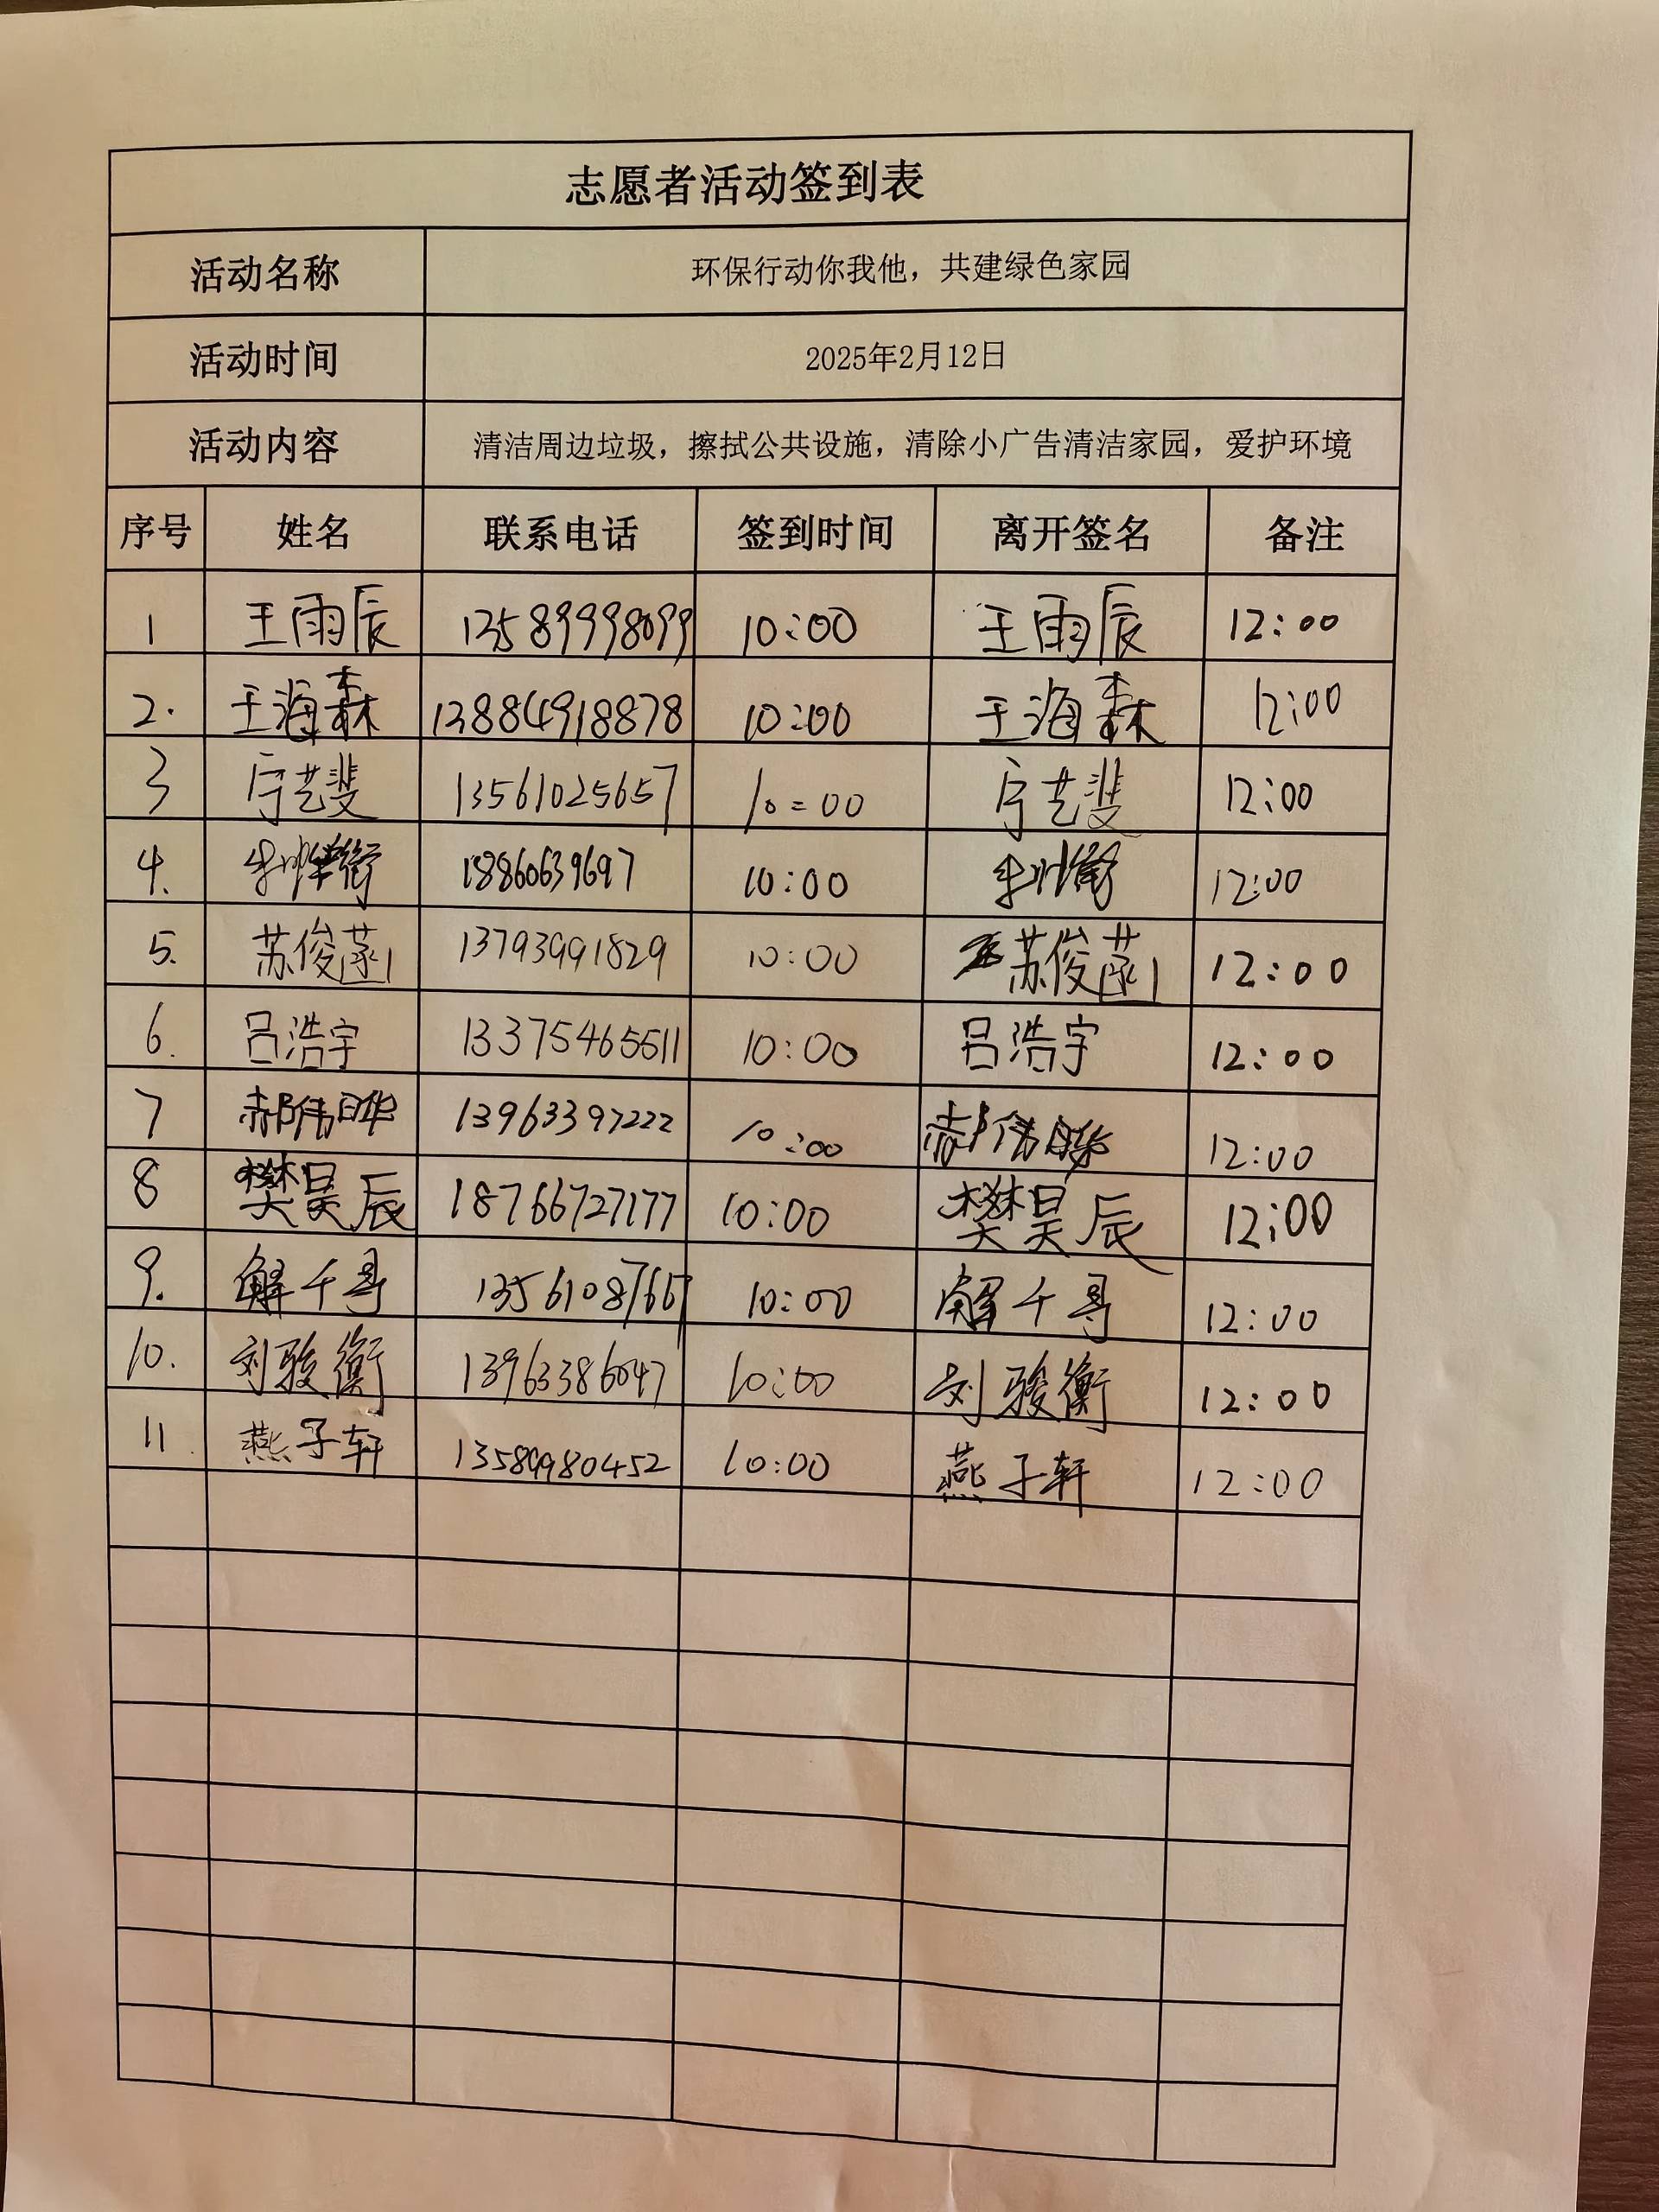 志愿者活动签到表
活动名称 环保行动你我他，共建绿色家园
活动时间 2025年2月12日
活动内容 清洁周边垃圾，擦拭公共设施，清除小广告清洁家园，爱护环境
序号 姓名 联系电话 签到时间 离开签名 备注
1 王雨辰 13589998099 10:00 王雨辰 12:00
2. 王海森 13884918878 10:00 王海森 12:00
3 宁艺斐 13561025657 10=00 宁艺斐 12:00
4. 18860639697 10:00 12:00
5. 苏俊菡 13793991829 10:00 苏俊菡 12:00
6. 吕浩宇 13375465511 10:00 吕浩宇 12:00
7 郝伟晔 13963397222 10:00 郝伟晔 12:00
8 樊昊辰 18766727177 10:00 樊昊辰 12:00
9. 解千哥 10:00 解千哥 12:00
10. 刘骏衡 13963386047 10:00 刘骏衡 12:00
11 燕子轩 13589980452 10:00 燕子轩 12:00